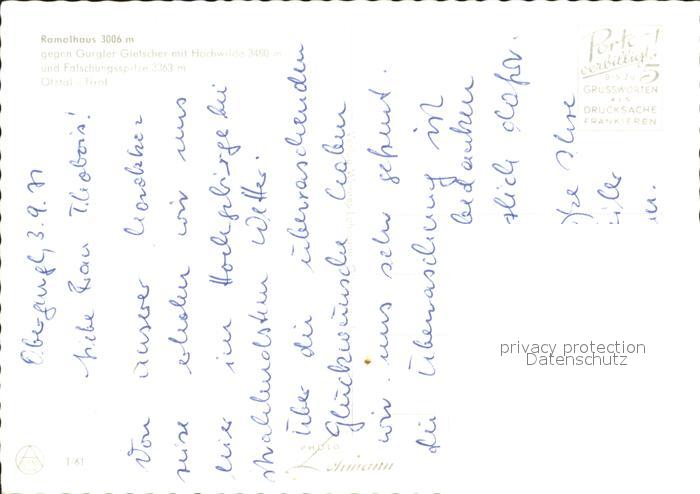 Ramolhaus 3006 m
gegen Gurgler Gletscher mit Hochwilde 3480 m
und Falschungsspitze 3363 m
Ötztal - Tirol
Porto-
verbilligt!
BIS ZU 5
GRUSSWORTEN
ALS
DRUCKSACHE
FRANKIEREN
Obergurgl, 3.9.71
Liebe Frau Thobois!
Von unserer
reise erholen wir uns
hier im Hochgebirge bei
strahlendstem Wetter.
Über die überraschenden
Glückwünsche haben
wir uns sehr gefreut.
die Überraschung ist
bedanken
zlich dafür.
Ihre
privacy protection
Datenschutz
PHOTO
Lohmann
1/61